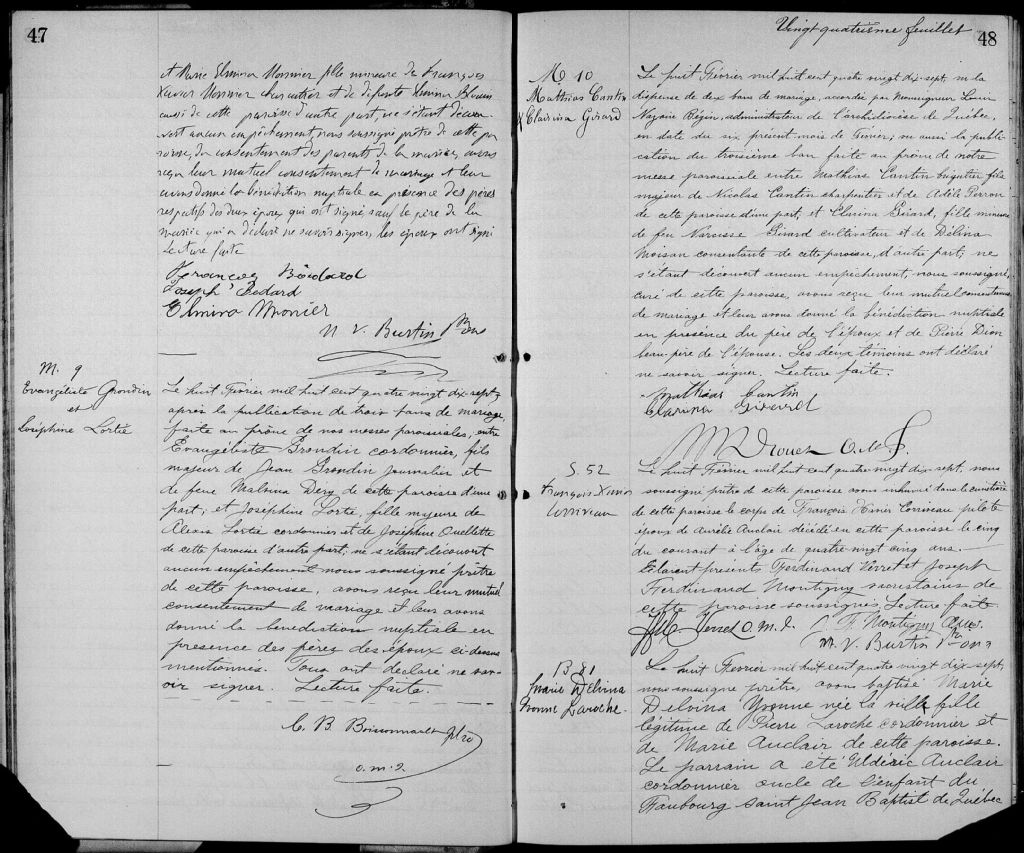 47
et Marie Elmina Monnier fille mineure de François
Xavier Monnier charretier et de défunte Emma Blouin
aussi de cette paroisse d'autre part, ne s'étant décou-
vert aucun empêchement, nous soussigné prêtre de cette pa
roisse, du consentement des parents de la mariée, avons
reçu leur mutuel consentement de mariage et leur
avons donné la bénédiction nuptiale en présence des pères
respectifs des deux époux qui ont signé sauf le père de la
mariée qui a déclaré ne savoir signer, les époux ont signé
Lecture faite
François Bédard
Joseph Bedard
Elmina Monier
N. V. Burtin Ptre o.m.i
M. 9
Evangéliste Grondin
et
Joséphine Lortie
Le huit Février mil huit cent quatre vingt dix-sept,
après la publication de trois bans de mariage,
faite au prône de nos messes paroissiales, entre
Evangéliste Grondin cordonnier, fils
majeur de Jean Grondin journalier et
de feue Malvina Dery de cette paroisse d'une
part; et Joséphine Lortie, fille majeure de
Alexis Lortie cordonnier et de Joséphine Ouellette
de cette paroisse d'autre part; ne s'étant découvert
aucun empêchement nous soussigné prêtre
de cette paroisse, avons reçu leur mutuel
consentement de mariage et leur avons
donné la bénédiction nuptiale en
présence des pères des époux ci-dessus
mentionnés. Tous ont déclaré ne sav-
oir signer. Lecture faite.
C. B. Boissonnault ptre
o.m.i
Vingt quatrième feuillet
48
M 10
Mathias Cantin
&
Clarina Girard
Le huit Février mil huit cent quatre vingt dix-sept, vu la
dispense de deux bans de mariage, accordée par Monseigneur Louis
Nazaire Bégin, administrateur de l'archidiocèse de Québec,
en date du six présent mois de Février; vu aussi la publi-
cation du troisième ban faite au prône de notre
messe paroissiale entre Mathias Cantin briquetier fils
majeur de Nicolas Cantin charpentier et de Adèle Perron
de cette paroisse d'une part, et Clarina Girard, fille mineure
de feu Narcisse Girard cultivateur et de Delina
Moisan consentante de cette paroisse, d'autre part; ne
s'étant découvert aucun empêchement, nous soussigné,
curé de cette paroisse, avons reçu leur mutuel consentement
de mariage et leur avons donné la bénédiction nuptiale
en présence du père de l'époux et de Pierre Dion
beau-père de l'épouse. Les deux témoins ont déclaré
ne savoir signer. Lecture faite.
Mathias Cantin
Clarina Girard
Drouet O.M.I.
S. 52
François Xavier
Corriveau
Le huit Février mil huit cent quatre vingt dix-sept, nous
soussigné prêtre de cette paroisse avons inhumé dans le cimetière
de cette paroisse le corps de François Xavier Corriveau pilote
époux de Aurélie Auclair décédé en cette paroisse le cinq
du courant à l'âge de quatre-vingt cinq ans.
Etaient présents Ferdinand Verret et Joseph
Ferdinand Montigny sacristains de
cette paroisse soussignés. Lecture faite.
Verret O.M.I. J. F. Montigny
N. V. Burtin Ptre o.m.i
B 81
Marie Délvina
Yvonne Laroche.
Le huit Février mil huit cent quatre vingt dix-sept,
nous soussigné prêtre, avons baptisé Marie
Delvina Yvonne née la veille fille
légitime de Pierre Laroche cordonnier et
de Marie Auclair de cette paroisse.
Le parrain a été Uldéric Auclair
cordonnier oncle de l'enfant du
Faubourg Saint Jean Baptist de Québec